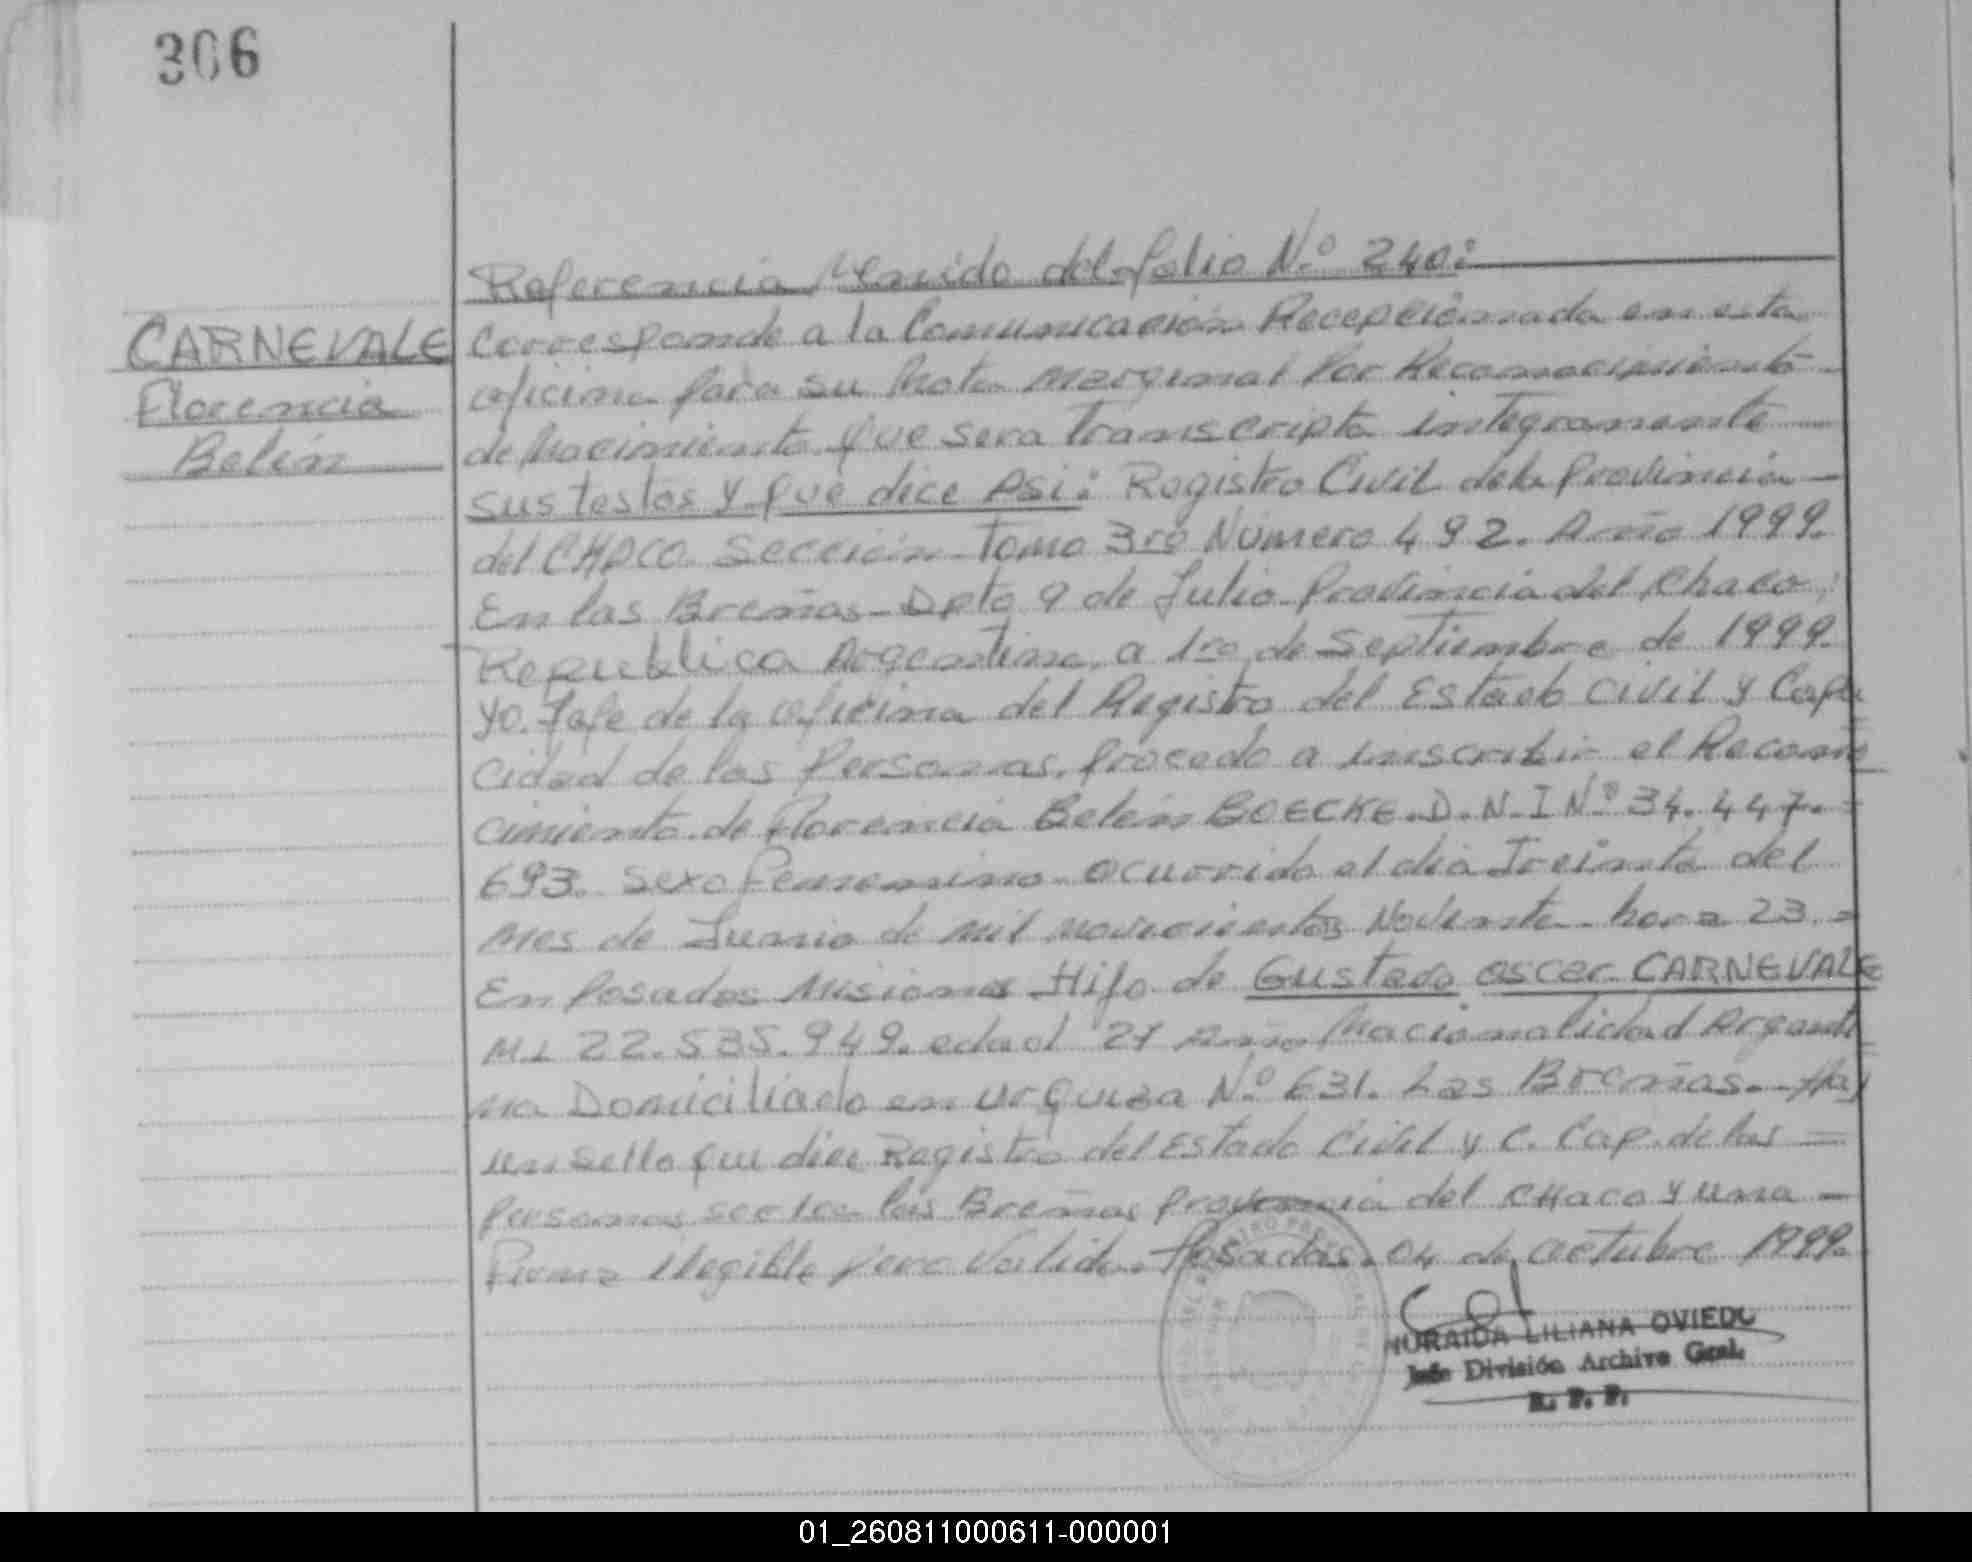 306
Referencia Venido del folio N.º 240:
CARNEVALE
Florencia
Belén
Corresponde a la Comunicación Recepcionada en esta
oficina para su Nota Marginal Por Reconocimiento
de Nacimiento que sera Transcripta integramente
sus testos y que dice Asi: Registro Civil de la Provincia
del CHACO. Sección Tomo 3ro Número 492. Año 1999.
En las Breñas - Dpto 9 de Julio Provincia del Chaco,
Republica Argentina, a 1ro de Septiembre de 1999.
Yo. Jefe de la oficina del Registro del Estado Civil y Capa
cidad de las Personas, procedo a inscribir el Recono
cimiento de Florencia Belén BOECKE. D.N.I Nº 34.447.-
693. Sexo Femenino ocurrido el dia Treinta del
Mes de Junio de mil novecientos Noventa hora 23.-
En Posadas Misiones Hijo de Gustavo Oscar CARNEVALE
M.I. 22.535.949. edad 27 Años Nacionalidad Argenti
na Domiciliado en Urquiza Nº 631. Las Breñas. Hay
un sello que dice Registro del Estado Civil y C. Cap. de las -
Personas las Breñas Provincia del CHACO y una -
Firma Ilegible pero Valida. Posadas. 04 de Octubre 1999.
LILIANA OVIEDO
Jefe División Archivo Gral.
R. P. P.
01_260811000611-000001